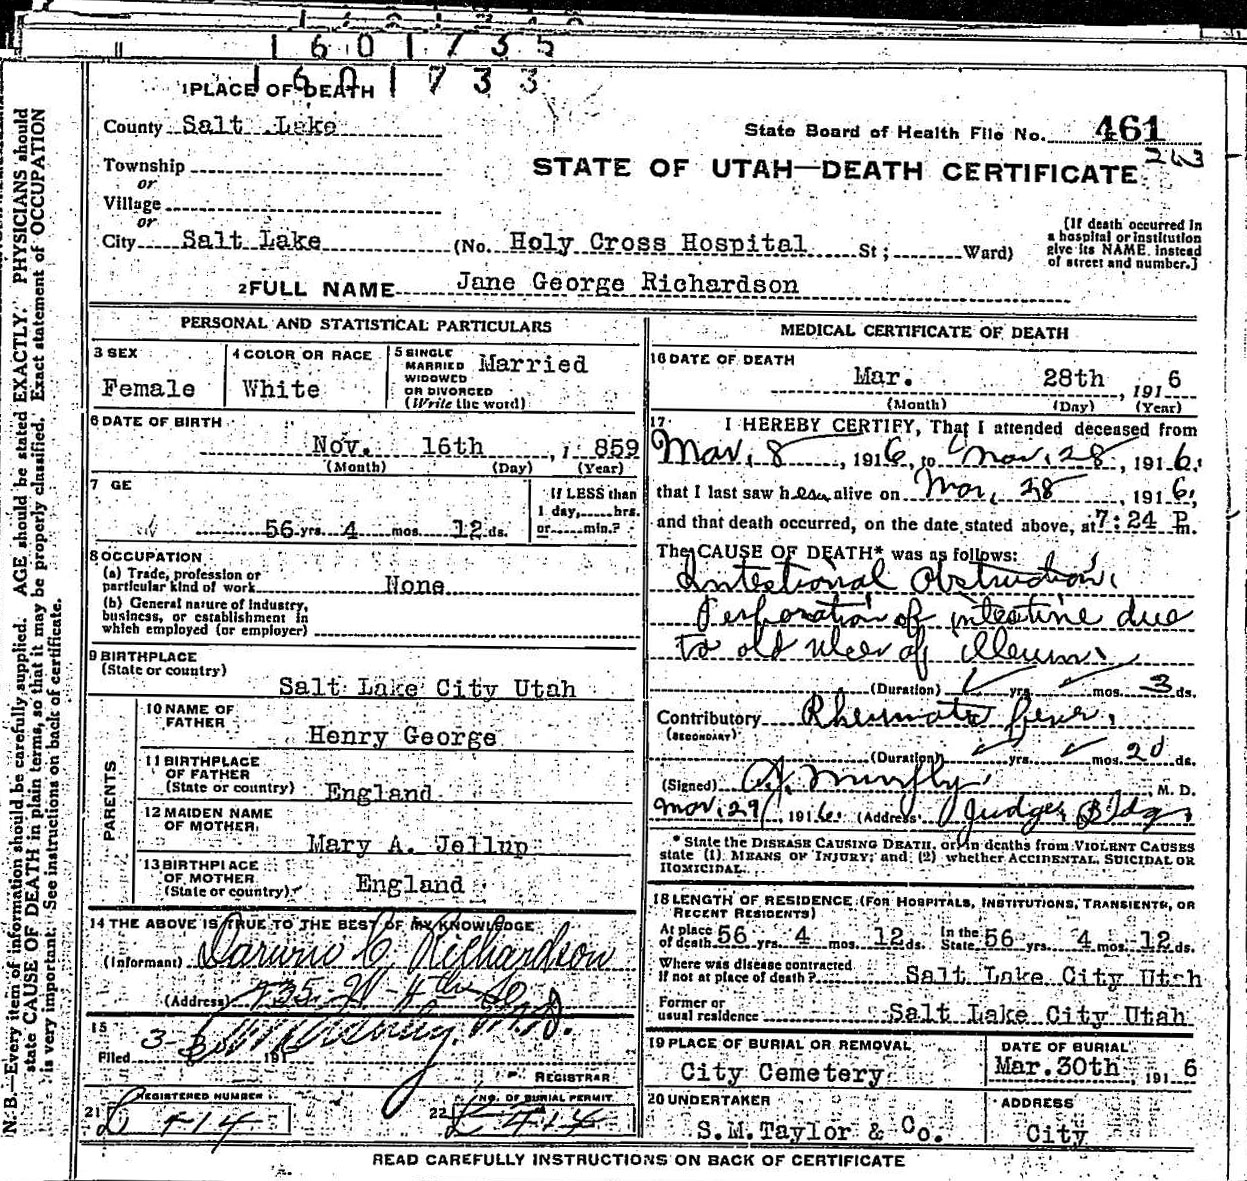 1601735
1601733
1 PLACE OF DEATH
County Salt Lake
State Board of Health File No. 461
243
Township
or
Village
or
City Salt Lake (No. Holy Cross Hospital St; Ward)
STATE OF UTAH—DEATH CERTIFICATE
[If death occurred in
a hospital or institution
give its NAME instead
of street and number.]
2 FULL NAME Jane George Richardson
PERSONAL AND STATISTICAL PARTICULARS
3 SEX
Female
4 COLOR OR RACE
White
5 SINGLE
MARRIED
WIDOWED
OR DIVORCED
(Write the word)
Married
6 DATE OF BIRTH
Nov. 16th, 1 859
(Month) (Day) (Year)
7 GE
56 yrs. 4 mos. 12 ds.
If LESS than
1 day, hrs.
or min.?
8 OCCUPATION
(a) Trade, profession or
particular kind of work None
(b) General nature of industry,
business, or establishment in
which employed (or employer)
9 BIRTHPLACE
(State or country)
Salt Lake City Utah
PARENTS
10 NAME OF
FATHER
Henry George
11 BIRTHPLACE
OF FATHER
(State or country) England
12 MAIDEN NAME
OF MOTHER
Mary A. Jellup
13 BIRTHPLACE
OF MOTHER
(State or country) England
14 THE ABOVE IS TRUE TO THE BEST OF MY KNOWLEDGE
(Informant) Richardson
(Address)
15
Filed 3-3 191
REGISTRAR
REGISTERED NUMBER
21 414
NO. OF BURIAL PERMIT
22 414
MEDICAL CERTIFICATE OF DEATH
16 DATE OF DEATH
Mar. 28th, 1916
(Month) (Day) (Year)
17 I HEREBY CERTIFY, That I attended deceased from
Mar. 8, 1916, to Mar. 28, 1916,
that I last saw her alive on Mar. 28, 1916,
and that death occurred, on the date stated above, at 7:24 P.m.
The CAUSE OF DEATH* was as follows:
Intestional Obstruction,
Perforation of intestine due
to old ulcer of illeum.
(Duration) yrs. mos. 3 ds.
Contributory Rheumatic fever,
(SECONDARY)
(Duration) yrs. mos. 20 ds.
(Signed) Murphy, M. D.
Mar. 29, 1916. (Address) Judge Bldg.
* State the DISEASE CAUSING DEATH, or in deaths from VIOLENT CAUSES
state (1) MEANS OF INJURY; and (2) whether ACCIDENTAL, SUICIDAL OR
HOMICIDAL.
18 LENGTH OF RESIDENCE (FOR HOSPITALS, INSTITUTIONS, TRANSIENTS, OR
RECENT RESIDENTS)
At place
of death 56 yrs. 4 mos. 12 ds. In the
State 56 yrs. 4 mos. 12 ds.
Where was disease contracted
if not at place of death? Salt Lake City Utah
Former or
usual residence Salt Lake City Utah
19 PLACE OF BURIAL OR REMOVAL
City Cemetery
DATE OF BURIAL
Mar. 30th, 1916
20 UNDERTAKER
S.M. Taylor & Co.
ADDRESS
City
READ CAREFULLY INSTRUCTIONS ON BACK OF CERTIFICATE
N. B.—Every item of information should be carefully supplied. AGE should be stated EXACTLY. PHYSICIANS should
state CAUSE OF DEATH in plain terms, so that it may be properly classified. Exact statement of OCCUPATION
is very important. See instructions on back of certificate.